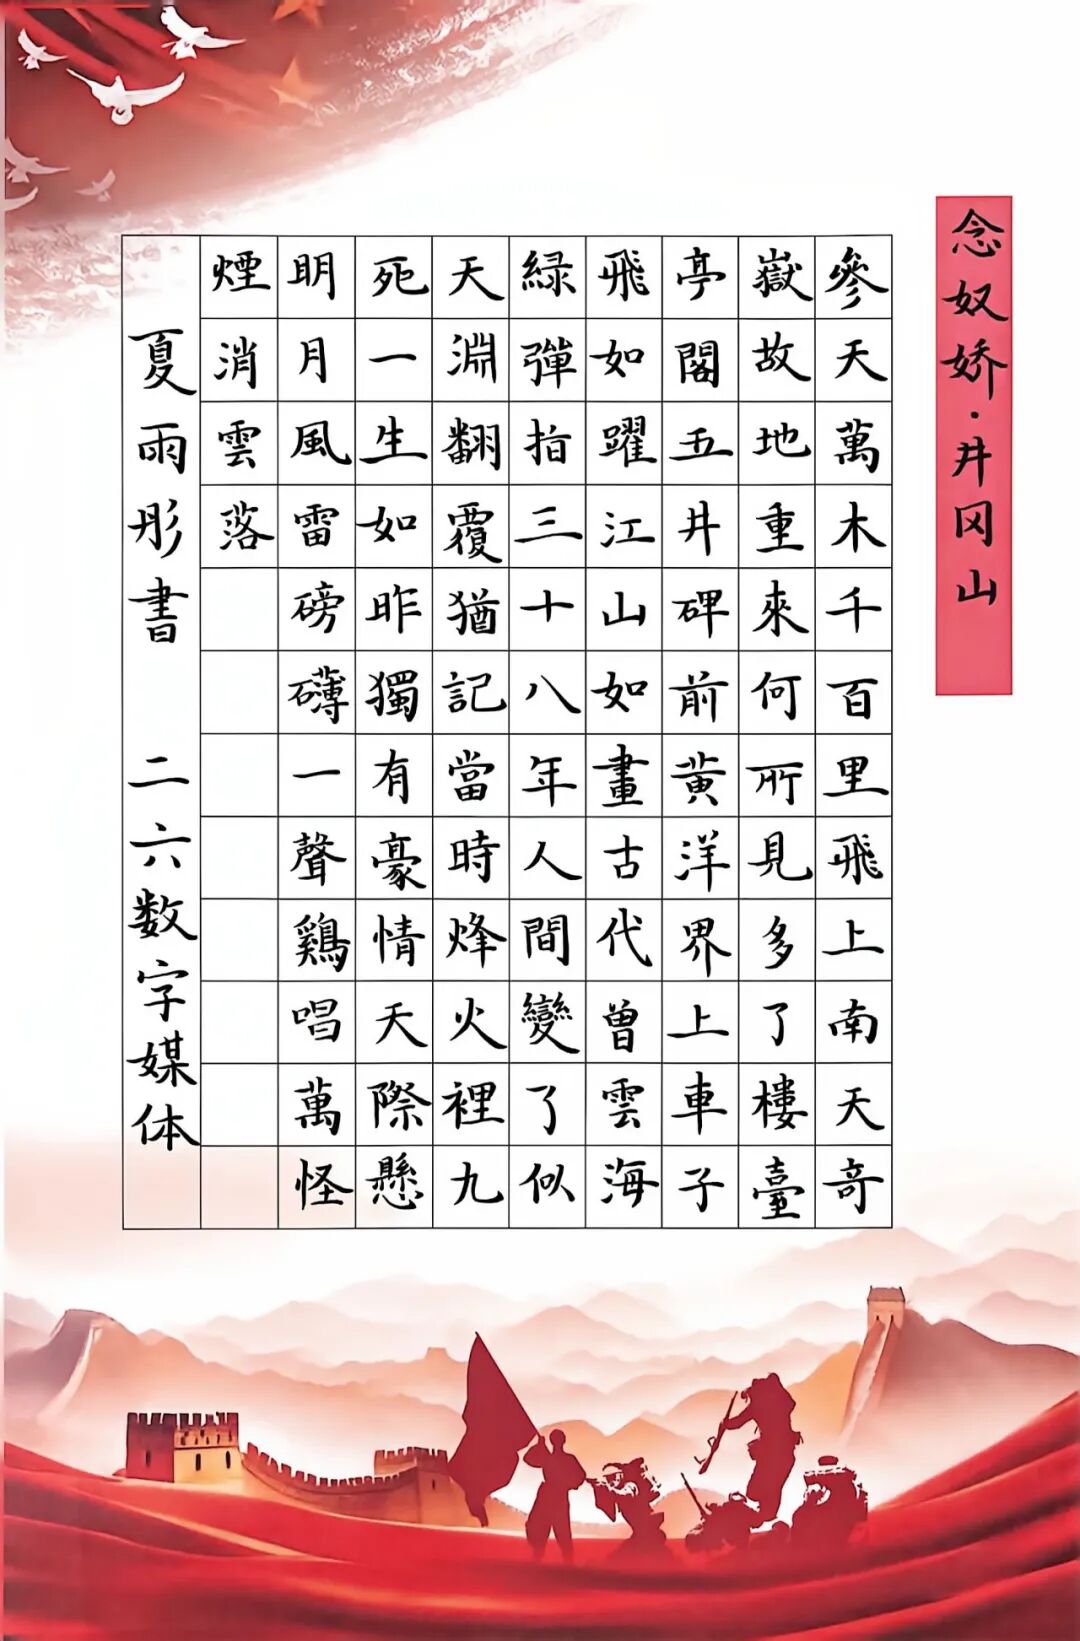 念奴娇·井冈山
參天萬木千百里飛上南天奇
嶽故地重來何所見多了樓臺
亭閣五井碑前黄洋界上車子
飛如躍江山如畫古代曾雲海
緑彈指三十八年人間變了似
天淵翻覆猶記當時烽火裡九
死一生如昨獨有豪情天際懸
明月風雷磅礴一聲鷄唱萬怪
煙消雲落
夏雨彤書 二六数字媒体